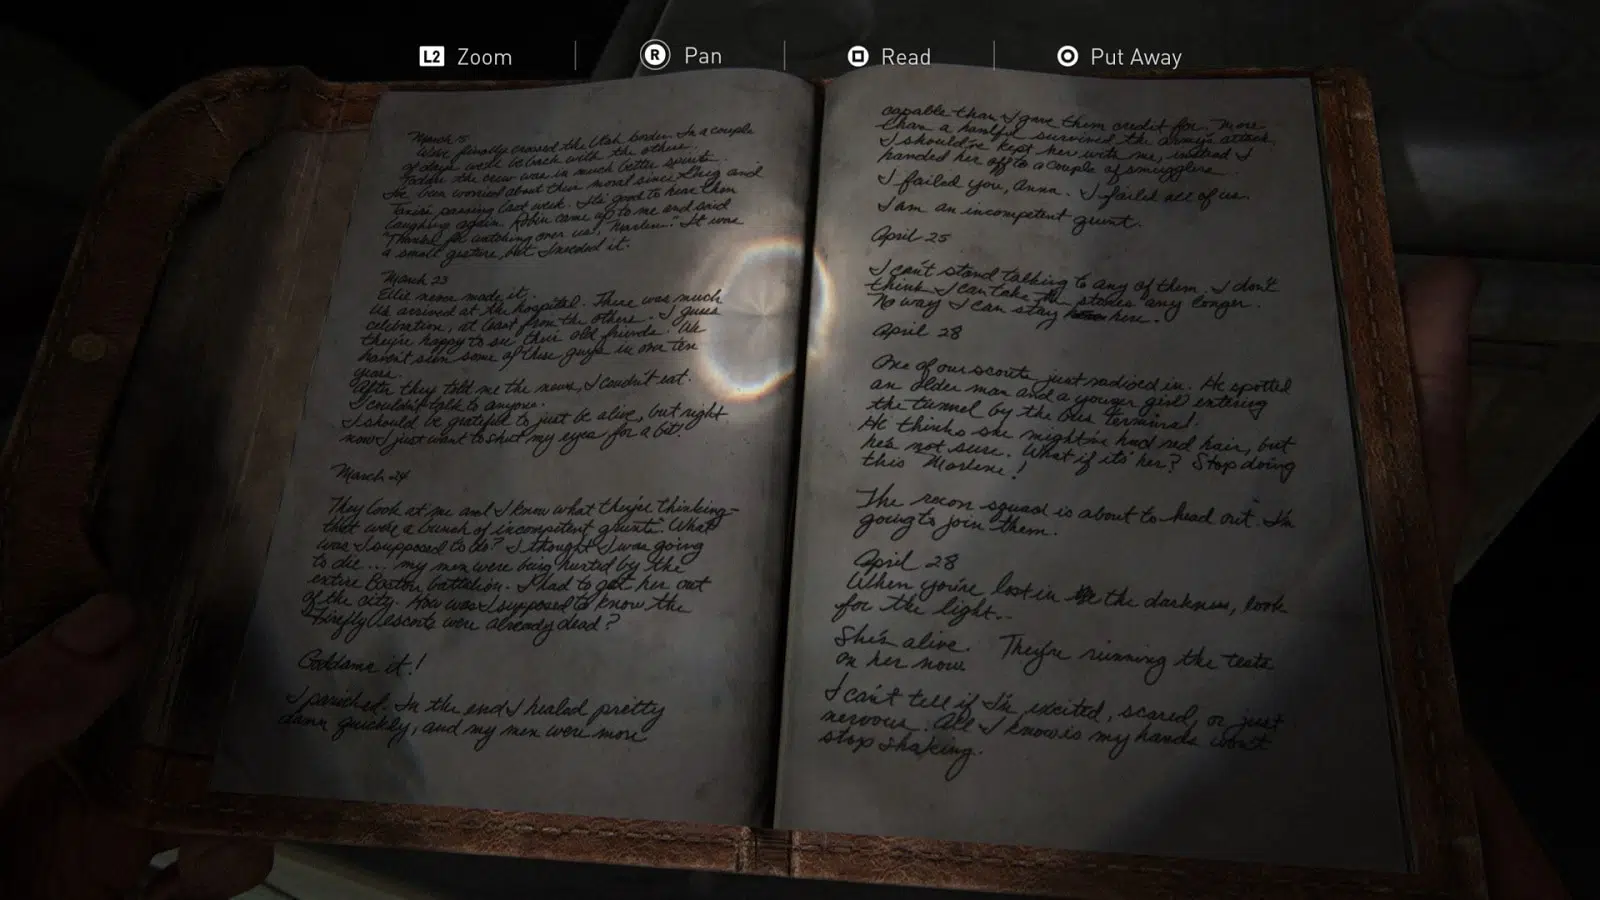 L2 Zoom
R Pan
Read
Put Away
March 15
We've finally crossed the Utah border. In a couple
of days we'll be back with the others.
Today the crew was in much better spirits.
I've been worried about their moral since Greg and
passing last week. It's good to hear them
laughing again. Robin came up to me and said
"Thanks for watching over us, Marlene." It was
a small gesture, but I needed it.
March 23
Ellie never made it.
We arrived at the hospital. There was much
celebration, at least from the others. I guess
they're happy to see their old friends. We
haven't seen some of these guys in over ten
years.
After they told me the news, I couldn't eat.
I couldn't talk to anyone.
I should be grateful to just be alive, but right
now I just want to shut my eyes for a bit.
March 24
They look at me and I know what they're thinking -
that we're a bunch of incompetent grunts. What
was I supposed to do? I thought I was going
to die... my men were being hunted by the
entire Boston battalion. I had to get her out
of the city. How was I supposed to know the
Firefly escorts were already dead?
Goddamn it!
I panicked. In the end I healed pretty
damn quickly, and my men were more
capable than I gave them credit for. More
than a handful survived the army's attack.
I should've kept her with me, instead I
handed her off to a couple of smugglers.
I failed you, Anna. I failed all of us.
I am an incompetent grunt.
April 25
I can't stand talking to any of them. I don't
think I can take the stares any longer.
No way I can stay here.
April 28
One of our scouts just radioed in. He spotted
an older man and a younger girl entering
the tunnel by the bus terminal.
He thinks she might've had red hair, but
he's not sure. What if it's her? Stop doing
this Marlene!
The recon squad is about to head out. I'm
going to join them.
April 28
When you're lost in the darkness, look
for the light..
She's alive. They're running the tests
on her now.
I can't tell if I'm excited, scared, or just
nervous. All I know is my hands won't
stop shaking.